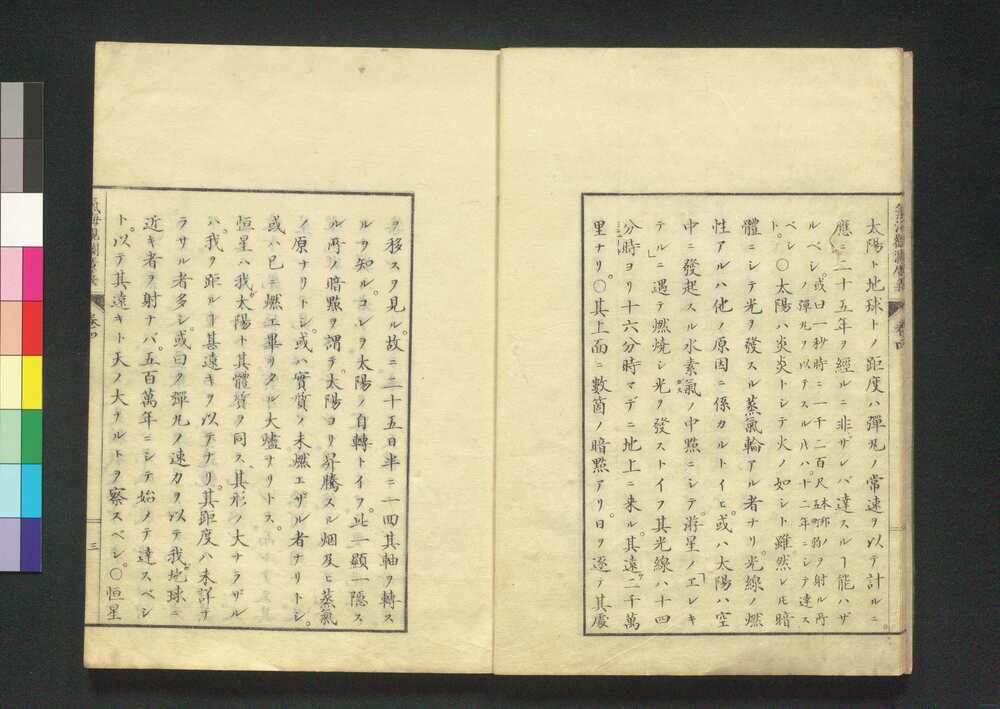 太陽ト地球トノ距度ハ彈丸ノ常速ヲ以テ計ルニ。
應ニ二十五年ヲ經ルニ非ザレバ達スルヿ能ハザ
ルベシ。或曰一秒時ニ一千二百尺本邦ノ五町豹ヲ射ル所
ノ彈丸ヲ以テスルハ十二年ニシテ達ス
ベシト。〇太陽ハ炎炎トシテ火ノ如シト雖然レ𪜈暗
體ニシテ光ヲ發スル蒸氣輪アル者ナリ。光線ノ燃
性アルハ他ノ原因ニ係カルトイヒ。或ハ太陽ハ空
中ニ發起スル水素氣ガスノ中㸃ニシテ游星ノ「エレキ
テル」ニ遇テ燃燒シ光ヲ發ストイフ其光線ハ十四
分時ヨリ十六分時マデニ地上ニ来ル。其遠二千萬
里ナリ。〇其上面ニ數箇ノ暗㸃アリ。日ヲ逐テ其處
氣海觀瀾廣義 卷四
ヲ移スヲ見ル。故ニ二十五日半ニ一囘其軸ヲ轉ス
ルヲ知ル。コレヲ太陽ノ自轉トイフ。此一顯一隱ス
ル所ノ暗㸃ヲ謂テ太陽ヨリ昇騰スル烟及ヒ蒸氣
ノ原ナリトシ。或ハ實質ノ未燃エザル者ナリトシ。
或ハ已ニ燃エ畢リタル大燼ナリトス。
恒星ハ我太陽ト其體質ヲ同ス、其形ノ大ナラザル
ハ。我ヲ距ルヿ甚遠キヲ以テナリ。其距度ハ未詳ナ
ラサル者多シ。或曰ク彈丸ノ速力ヲ以テ我地球ニ
近キ者ヲ射ナバ。五百萬年ニシテ始メテ達スベシ
ト。以テ其遠キト天ノ大ナルトヲ察スベシ。〇恒星
氣海觀瀾廣義 卷四
三